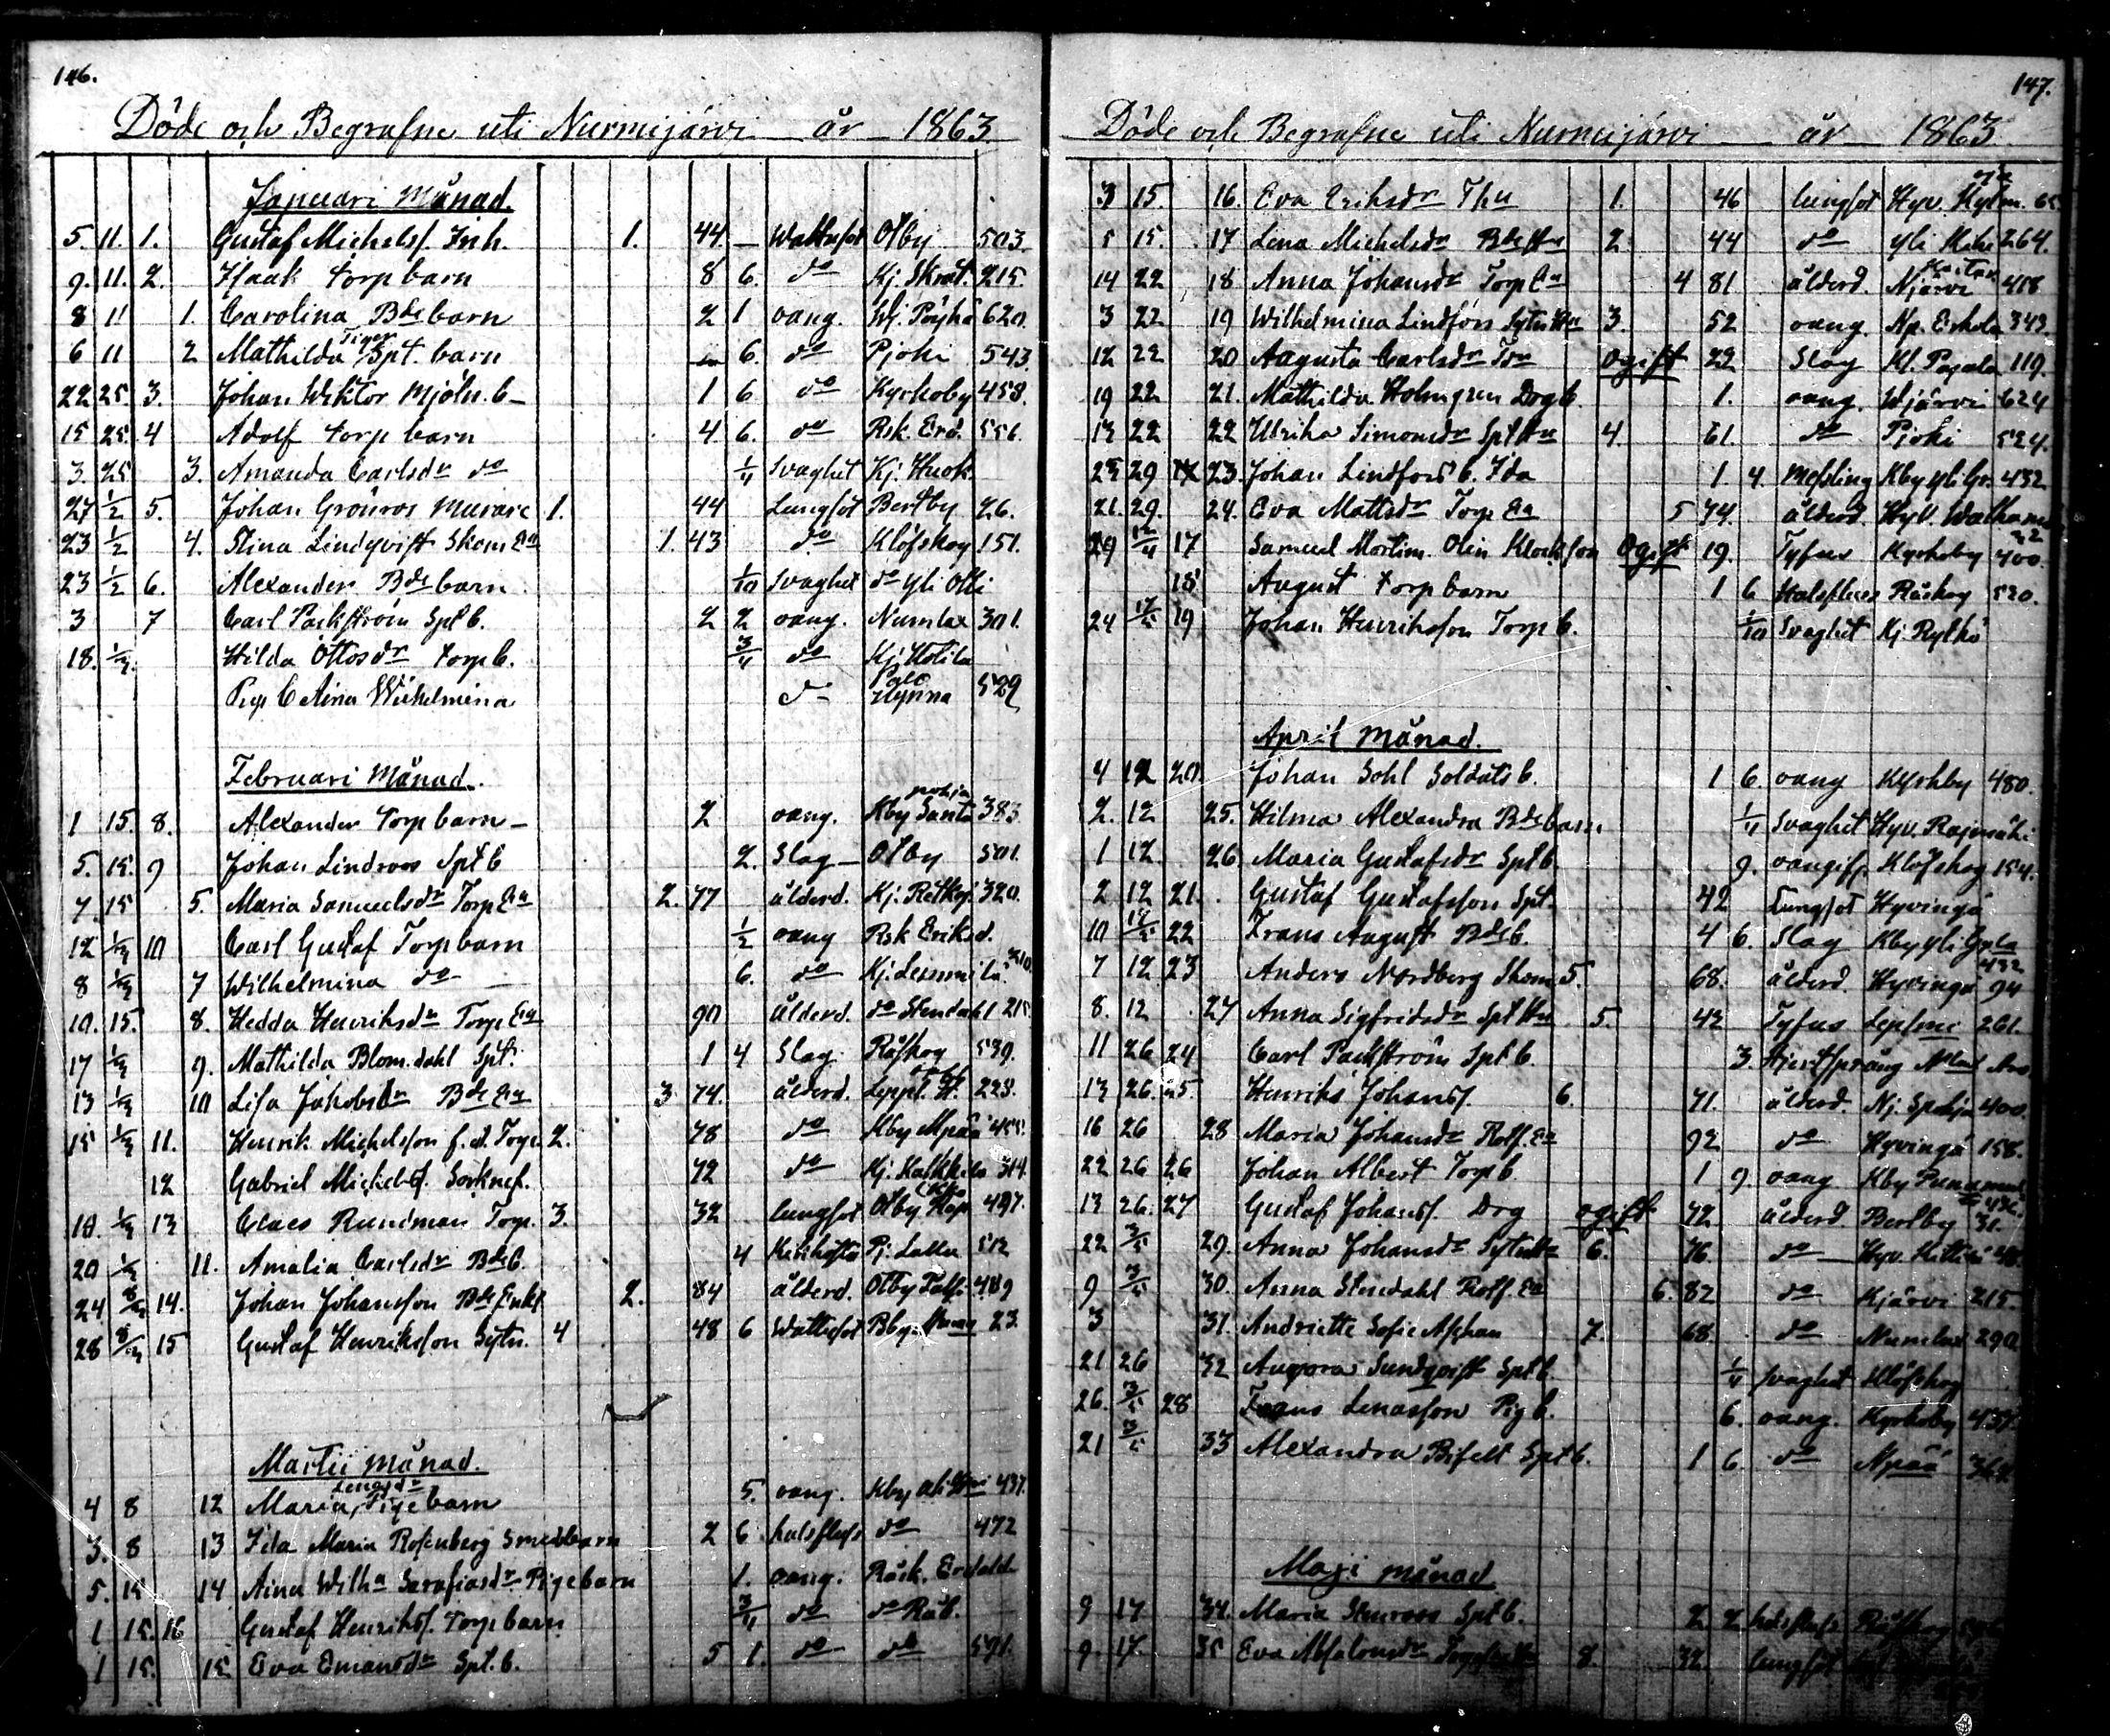 146.
Döde och Begrafne uti Nurmijärvi år 1863.
Januari Månad.
5. 11. 1. Gustaf Michelss. Inh. 1. 44 — Wattusot Otby 503.
9. 11. 2. Isaak Torp barn 8 6. do Kj. Skröt. 215.
8 11 1. Carolina Bde barn 2 1 oang. Wj. Pöyhö 620.
6 11 2 Mathilda Spt. barn 6. do Pjoki 543.
22 25. 3. Johan Wiktor Mjöln. b — 1 6 do Kyrkoby 458.
15 25. 4 Adolf Torp barn 4. 6. do Rsk. Erd. 556.
3. 25 3. Amanda Carlsdr do 1/4 Svaghet Kj. Huok.
27 1/2 5. Johan Grönros Murare 1. 44 Lungsot Bertby 26.
23 1/2 4. Stina Lindqvist Skom Ea 1. 43 do Klöfskog 151.
23 1/2 6. Alexander Bde barn 1/10 Svaghet do Yli Olli
3 7 Carl Packström Spt b. 2 2 oang. Numlax 301.
18. Hilda Ottosdr Torp b. 3/4 do Kj. Kotila
Pig b Aina Wilhelmina do Palo 529
Februari Månad.
1 15. 8. Alexander Torp barn — 2 oang. Kby Santa pohja 383
5. 15. 9 Johan Lindroos Spt b 2. Slag — Otby 501.
7. 15 5. Maria Samuelsdr Torp Ea 2. 77 ålderd. Kj. Retkoj. 320.
12 10 Carl Gustaf Torp barn 1/2 oang Rsk Eriksd.
8 7 Wilhelmina do — 6. do Kj.
10. 15. 8. Hedda Henriksdr Torp Ea 90 ålderd. do Stendahl 215
17 9. Mathilda Blomdahl Spt. 1 4 Slag Råskog 539.
13 10 Lisa Jakobsdr Bde Ea 3 74. ålderd. 228.
15 11. Henrik Michelsson f.d. Torp. 2. 78 do Kby Mpää 455.
12 Gabriel Michelss. Socknef. 72 do Kj. 314.
10. 13 Claes Rundman Torp. 3. 32 lungsot Otby 497.
20 11. Amalia Carlsdr Bde b. 4 Kikhosta Pj. Lallu 512
24 14. Johan Johansson Bde Enkl. 2. 84 ålderd. Otby 489
28 15 Gustaf Henriksson Sytn. 4 48 6 Wattusot Bby 23.
Martii månad.
4 8 12 Maria Lenasdr Pige barn 5. oang. Kby 437.
3. 8 13 Ida Maria Rosenberg Smedbarn 2 6 halsfluss do 472
5. 15 14 Aina Wilha Serafiasdr Pigebarn 1. oang. Råsk.
1 15. 16 Gustaf Henrikss. Torp barn 3/4 do do Råb.
1 15. 15 Eva Emansdr Spt. b. 5 1. do do 591.
147.
Döde och Begrafne uti Nurmijärvi — år — 1863.
3 15. 16. Eva Eriksdr Thu 1. 46 lungsot Hyv. Kytöm.
5 15 17 Lena Michelsdr Bde Hu 2. 44 do Yli 264.
14 22 18 Anna Johansdr Torp Ea 4 81 ålderd. Njärvi 418
3 22 19 Wilhelmina Lindfors Sytn Hu 3. 52 oang. Np. Erkola 343.
12 22 20 Augusta Carlsdr ogift 22 Slag Kl. Pajala 119.
19 22 21. Mathilda Holmgren Drg b. 1. oang. Wjärvi 624
13 22 22 Ulrika Simonsdr Spt Hu 4. 61. do Pjoki 524.
25 29 23. Johan Lindfors b. Ida 1. 4. Messling Kby Yli Gr. 432
21. 29. 24. Eva Mattsdr Torp Ea 5 74. ålderd. Hyv.
29 12/4 17 Samuel Mortim. Olin Klockson Ogift 19. Tyfus Kyrkoby 400.
18 August Torp barn 1 6 Halsfluss Råskog 520.
24 19 Johan Henriksson Torp b. 1/10 Svaghet Kj. Rytkö
April månad.
4 12 20. Johan Sohl Soldats b. 1 6. oang Kyrkby 480.
2. 12 25. Hilma Alexandra Bde barn 1/4 Svaghet Hyv. Rajamäki
1 12 26 Maria Gustafsdr Spt b. 9. oangifv. Klöfskog 154.
2 12 21. Gustaf Gustafsson Spt. 42 Lungsot Hyvingä
10 22 Frans August Bde b. 4 6. Slag Kby Yli Gpla 432
7 12 23 Anders Nordberg Skom 5. 68. ålderd. Hyvingä 94
8. 12 27 Anna Sigfridsdr Spt Hu 5. 42 Tyfus Lepsme 261.
11 26 24 Carl Packström Spt b. 3. Hjertsprång
13 26. 25. Henrik Johanss. 6. 71. ålderd. Nj. 400.
16 26 28 Maria Johansdr Rotf. Ea 92 do Hyvingä 158.
22 26 26 Johan Albert Torp b. 1 9 oang Kby
13 26. 27 Gustaf Johanss. Drg ogift 72 ålderd Bertby 31.
22 3/5 29. Anna Johansdr Sytn Hu 6. 76. do Hyv.
9 3/5 30. Anna Stendahl Rotf. Ea 6. 82 do Kjärvi 215.
3 31 Andriette Sofie Asphan 7. 68. do Numlax 290.
21 26 32 Aurora Sundqvist Spt b. 1/4 svaghet Klöfskog
26. 3/5 28 Frans Lenasson Pig b. 6. oang. Kyrkoby 437
21 3/5 33 Alexandra Bifelt Spt b. 1 6. do Npää 364.
Maji månad.
9 17 34. Maria Stenroos Spt b. 2 2 halsfluss Råskog
9. 17. 35 Eva Absalonsdr 8. 32 lungsot